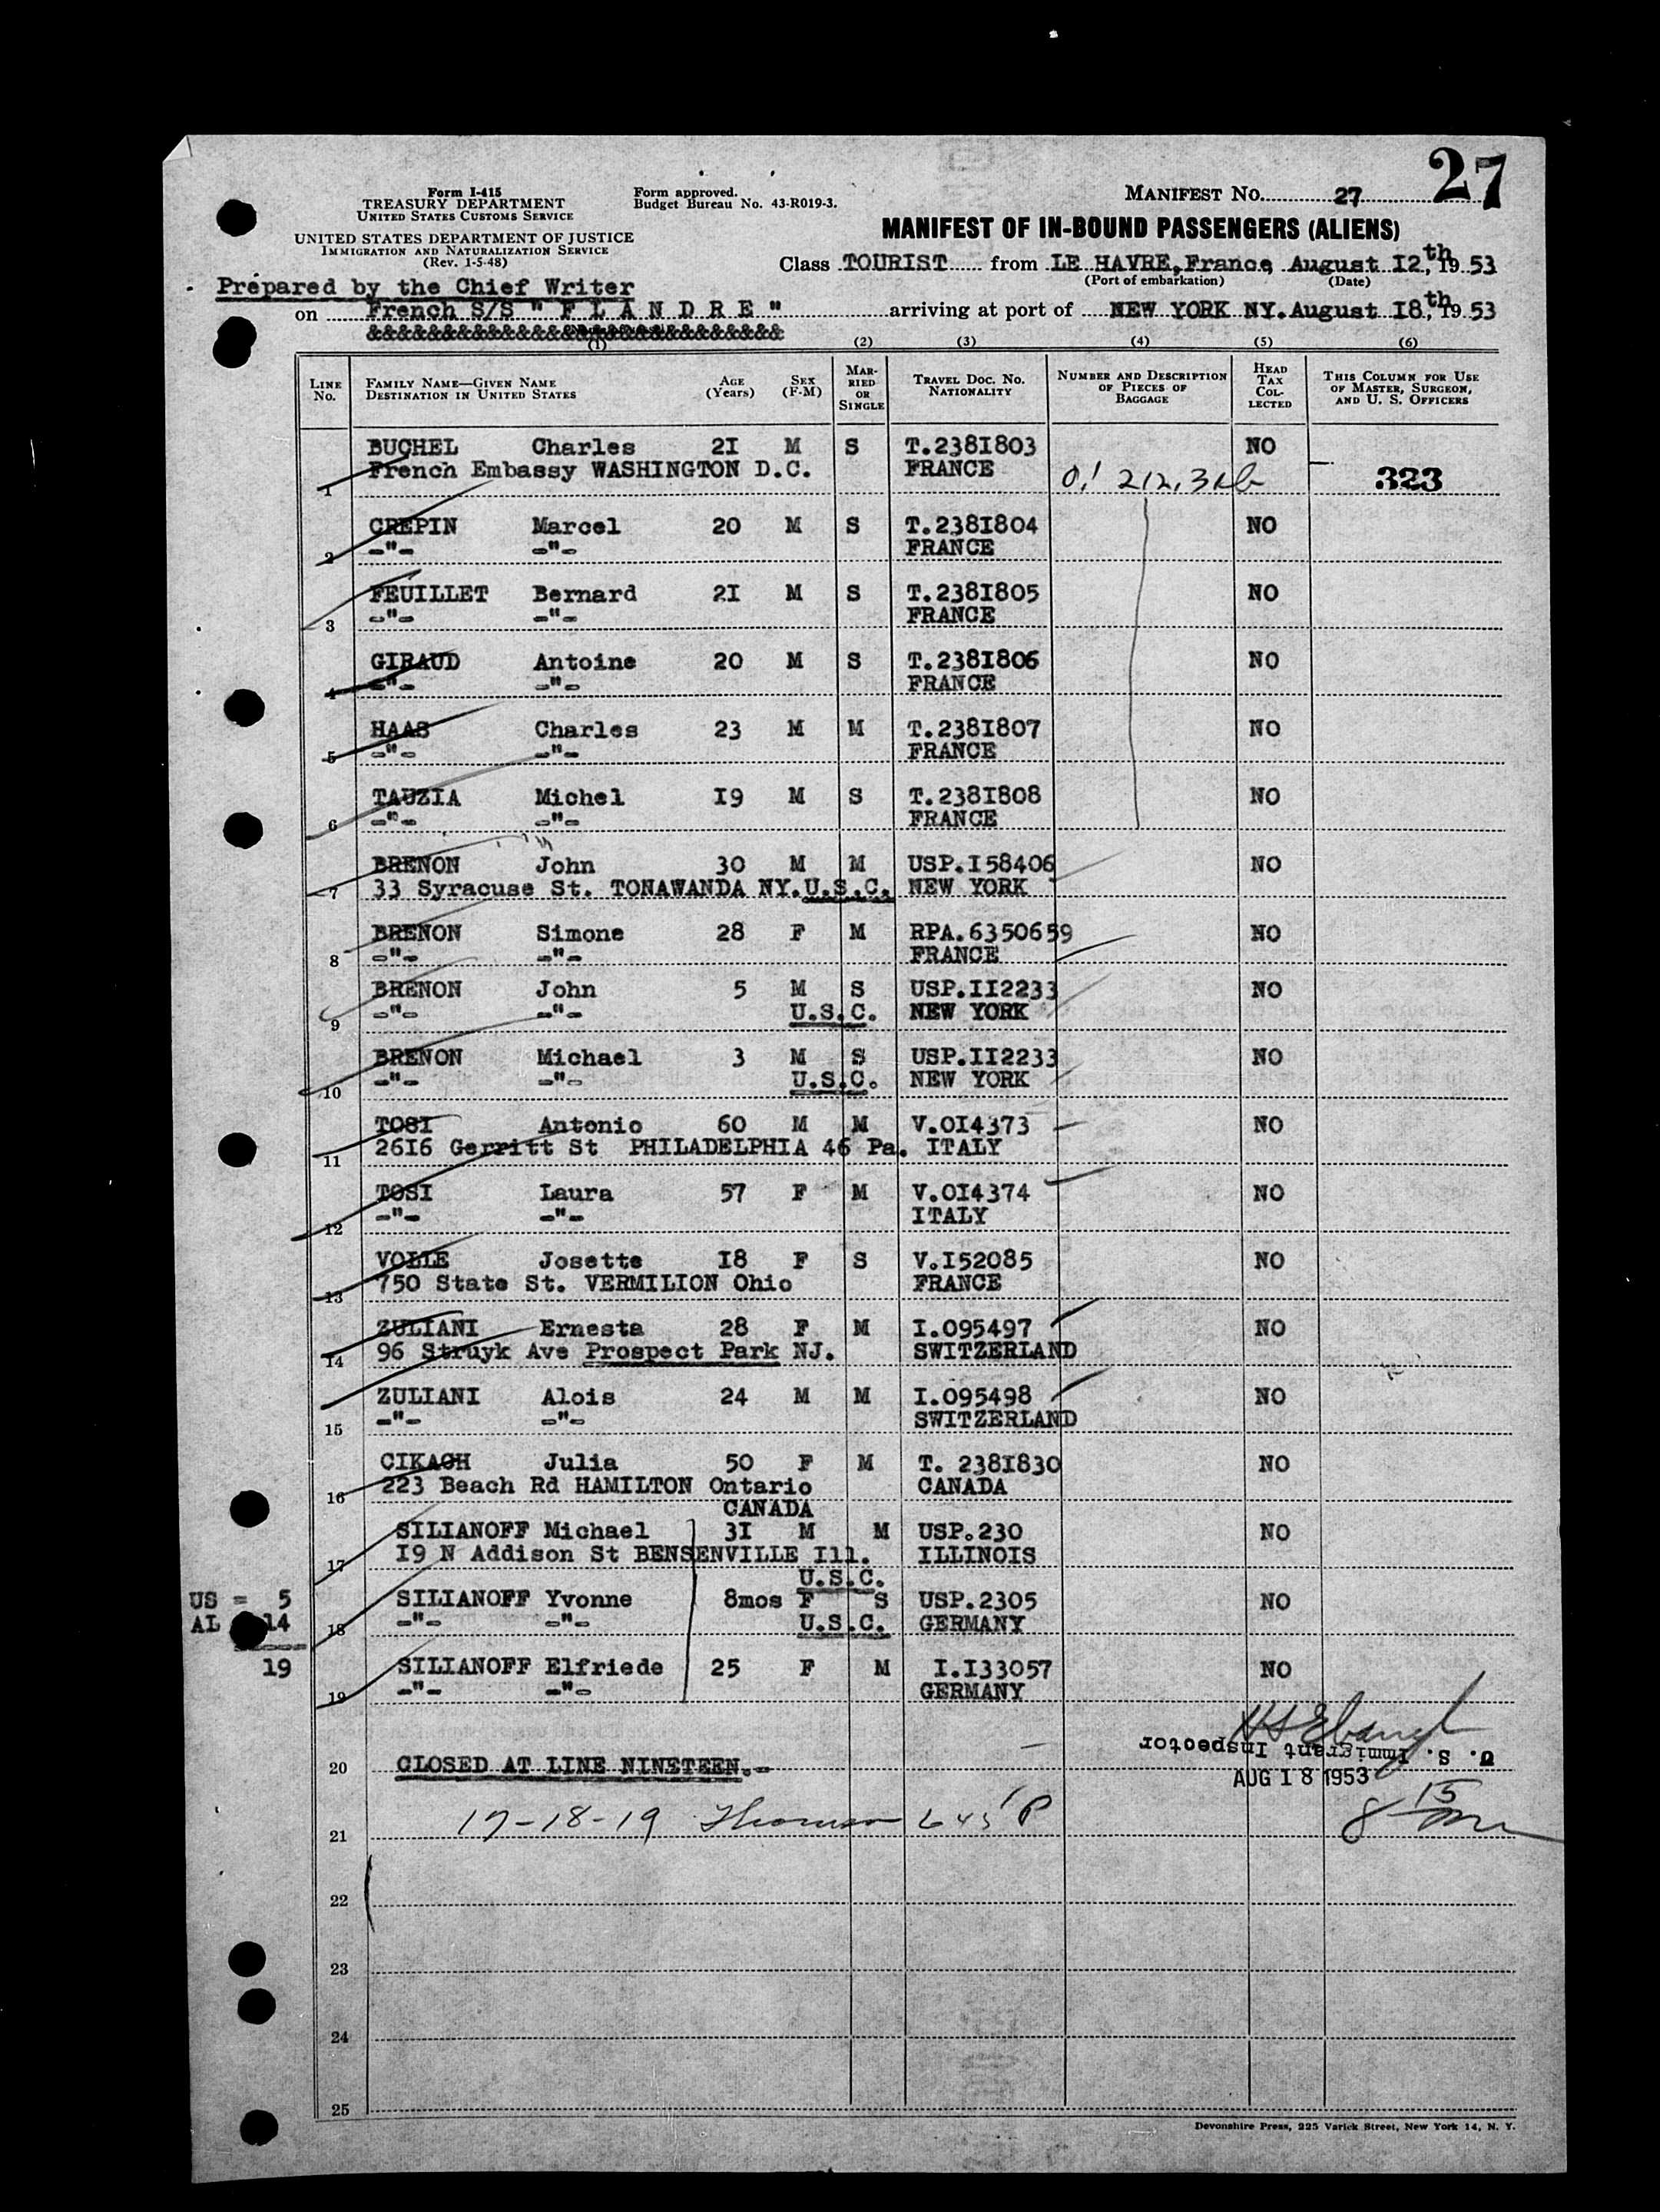 27
Form I-415
TREASURY DEPARTMENT
UNITED STATES CUSTOMS SERVICE
UNITED STATES DEPARTMENT OF JUSTICE
IMMIGRATION AND NATURALIZATION SERVICE
(Rev. 1-5-48)
Form approved.
Budget Bureau No. 43-R019-3.
MANIFEST NO. 27
MANIFEST OF IN-BOUND PASSENGERS (ALIENS)
Class TOURIST from LE HAVRE, France, August I2,th 19 53
(Port of embarkation) (Date)
Prepared by the Chief Writer
on French S/S " F L A N D R E " arriving at port of NEW YORK NY. August I8,th 19 53
&&&&&&&&&&&&&&&&&&&&&&&&&&&&&&&&&&
(1) (2) (3) (4) (5) (6)
LINE No. FAMILY NAME—GIVEN NAME DESTINATION IN UNITED STATES AGE (Years) SEX (F-M) MARRIED OR SINGLE TRAVEL DOC. NO. NATIONALITY NUMBER AND DESCRIPTION OF PIECES OF BAGGAGE HEAD TAX COLLECTED THIS COLUMN FOR USE OF MASTER, SURGEON, AND U. S. OFFICERS
BUCHEL Charles 2I M S T.238I803 NO
1 French Embassy WASHINGTON D.C. FRANCE 323
CREPIN Marcel 20 M S T.238I804 NO
2 -"- -"- FRANCE
FEUILLET Bernard 2I M S T.238I805 NO
3 -"- -"- FRANCE
GIRAUD Antoine 20 M S T.238I806 NO
4 -"- -"- FRANCE
HAAS Charles 23 M M T.238I807 NO
5 -"- -"- FRANCE
TAUZIA Michel I9 M S T.238I808 NO
6 -"- -"- FRANCE
BRENON John 30 M M USP.I58406 NO
7 33 Syracuse St. TONAWANDA NY. U.S.C. NEW YORK
BRENON Simone 28 F M RPA.6350659 NO
8 -"- -"- FRANCE
BRENON John 5 M S USP.II2233 NO
9 -"- -"- U.S.C. NEW YORK
BRENON Michael 3 M S USP.II2233 NO
10 -"- -"- U.S.C. NEW YORK
TOSI Antonio 60 M M V.OI4373 NO
11 26I6 Gerritt St PHILADELPHIA 46 Pa. ITALY
TOSI Laura 57 F M V.OI4374 NO
12 -"- -"- ITALY
VOLLE Josette I8 F S V.I52085 NO
13 750 State St. VERMILION Ohio FRANCE
ZULIANI Ernesta 28 F M I.095497 NO
14 96 Struyk Ave Prospect Park NJ. SWITZERLAND
ZULIANI Alois 24 M M I.095498 NO
15 -"- -"- SWITZERLAND
CIKACH Julia 50 F M T. 238I830 NO
16 223 Beach Rd HAMILTON Ontario CANADA
CANADA
SILIANOFF Michael 3I M M USP.230 NO
17 I9 N Addison St BENSENVILLE Ill. ILLINOIS
U.S.C.
US = 5 SILIANOFF Yvonne 8mos F S USP.2305 NO
AL 14 18 -"- -"- U.S.C. GERMANY
19 SILIANOFF Elfriede 25 F M I.I33057 NO
19 -"- -"- GERMANY
U. S. Immigrant Inspector
20 CLOSED AT LINE NINETEEN.-
AUG 18 1953
21 17-18-19 645 P 8 15
22
23
24
25
Devonshire Press, 225 Varick Street, New York 14, N. Y.